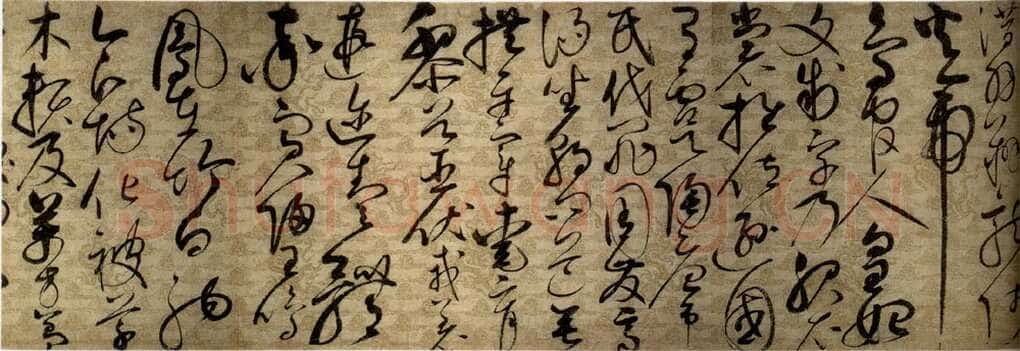 潛羽翔龍師
火帝
鳥官人皇始
文制字乃服衣
裳推位遜國
有虞陶唐弔
民伐罪周發商
湯坐朝問道垂
拱平章愛育
黎首臣伏戎羌
遐邇壹體
率賓歸王鳴
鳳在竹白駒
食場化被草
木賴及萬方蓋